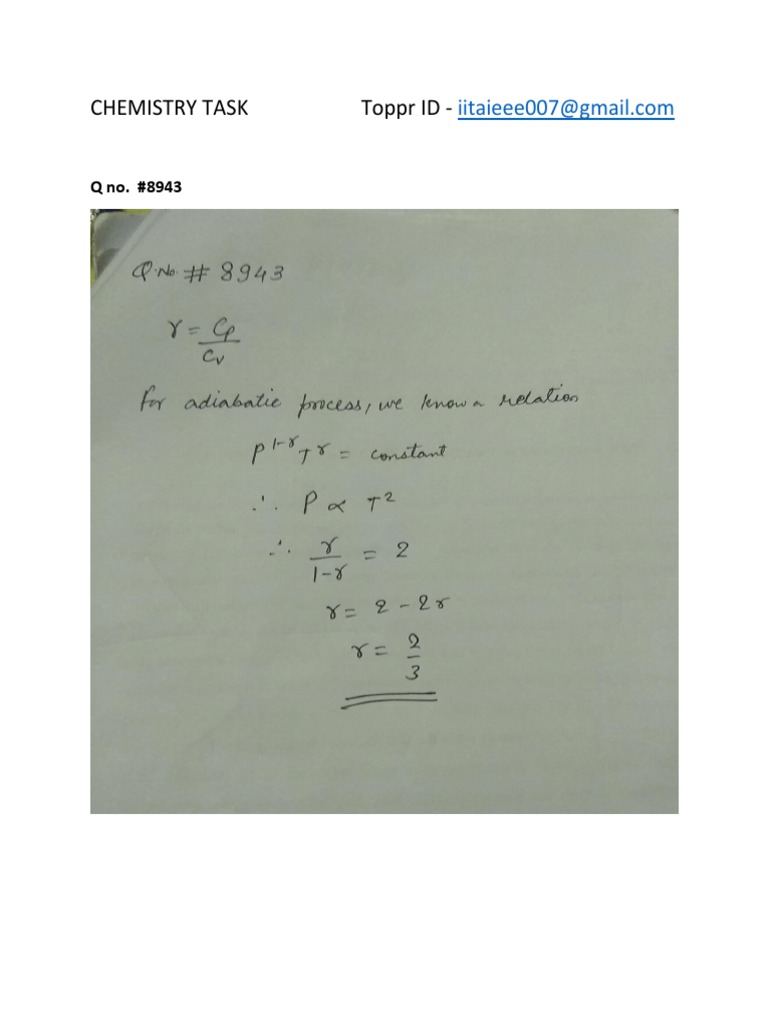 CHEMISTRY TASK Toppr ID - iitaieee007@gmail.com
Q no. #8943
Q.No. # 8943
γ = Cp
Cv
for adiabatic process, we know a relation
P^1-γ T^γ = constant
∴ P ∝ T^2
∴ γ/1-γ = 2
γ = 2 - 2γ
γ = 2/3